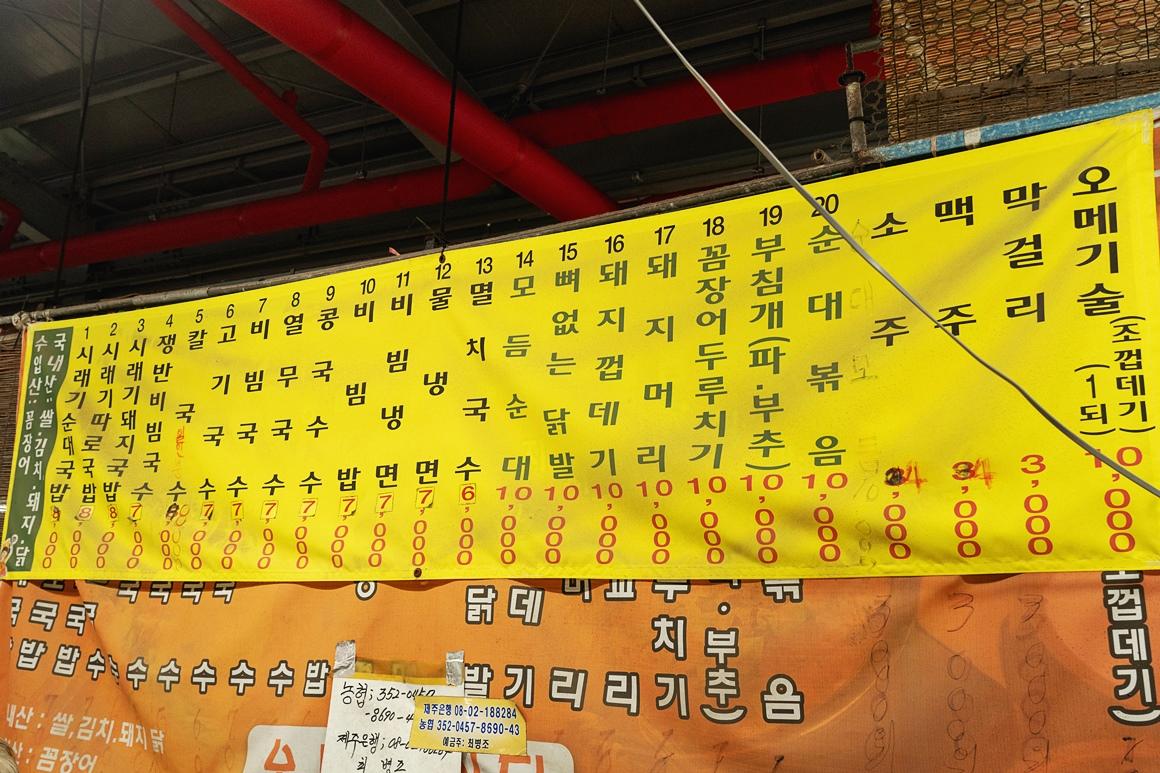 국내산: 쌀.김치.돼지.닭
수입산: 꼼장어
1 시래기순대국밥 8,000
2 시래기따로국밥 8,000
3 시래기돼지국수 7,000
4 쟁반비빔국수
5 칼국수 7,000
6 고기국수 7,000
7 비빔국수 7,000
8 열무국수 7,000
9 콩국수 7,000
10 비빔밥 7,000
11 비빔냉면 7,000
12 물냉면 7,000
13 멸치국수 6,000
14 모듬순대 10,000
15 뼈없는닭발 10,000
16 돼지껍데기 10,000
17 돼지머리 10,000
18 꼼장어두루치기 10,000
19 부침개(파.부추) 10,000
20 순대볶음 10,000
소주 4,000
맥주 4,000
막걸리 3,000
오메기술(조껍데기)(1되) 10,000
내산 : 쌀,김치,돼지 닭
산 : 꼼장어
농협; 352-0457
-8690-4
제주은행; 08-02-188284
최 병조
제주은행 08-02-188284
농협 352-0457-8690-43
예금주: 최병조